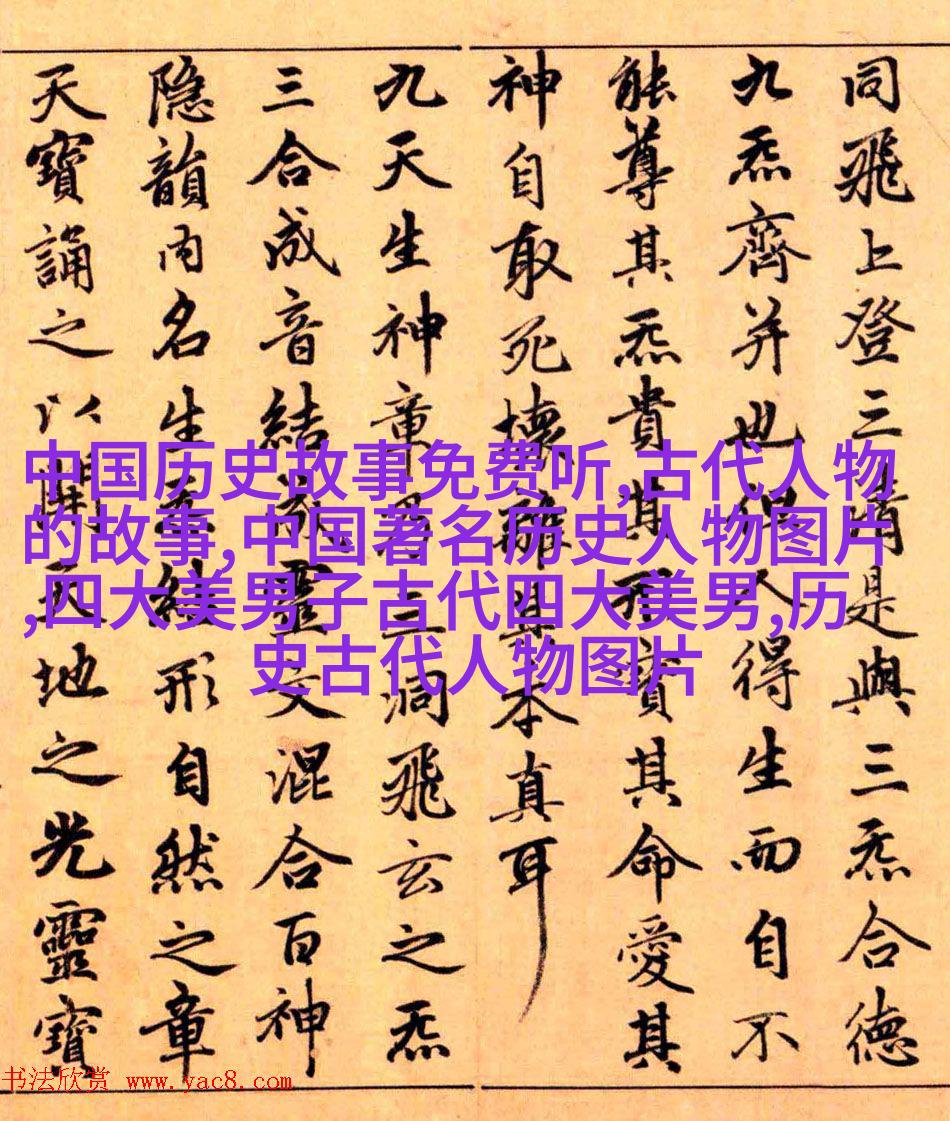 同飛上登三清是與三炁合德
九炁齊并也但人得生而自不
能尊其炁貴其形寶其命愛其
神自取死壞離其本真耳
九天生神章乃三洞飛玄之炁
三合成音結成靈文混合百神
隱韻內名生炁結形自然之章
天寶誦之以開天地之光靈寶
中国历史故事免费听,古代人物
的故事,中国著名历史人物图片
,四大美男子古代四大美男,历
史古代人物图片
书法欣赏 www.yac8.com